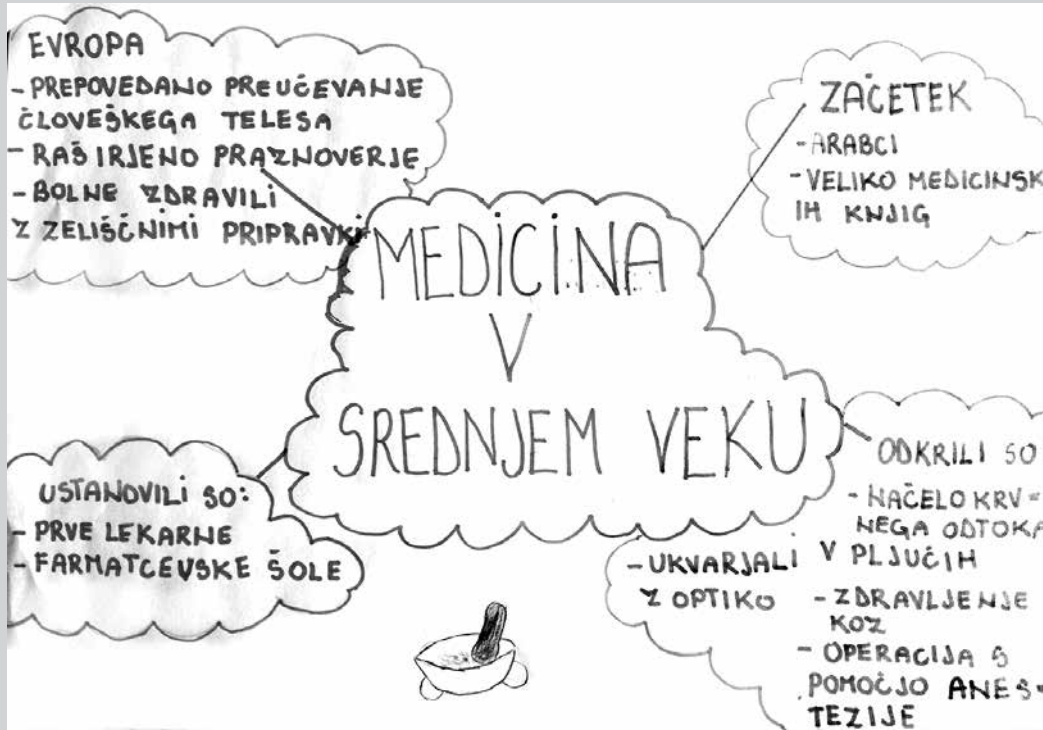 EVROPA
- PREPOVEDANO PREUČEVANJE
ČLOVEŠKEGA TELESA
- RAŠIRJENO PRAZNOVERJE
- BOLNE ZDRAVILI
Z ZELIŠČNIMI PRIPRAVKI
ZAČETEK
- ARABCI
- VELIKO MEDICINSK
IH KNJIG
MEDICINA
V
SREDNJEM VEKU
USTANOVILI SO:
- PRVE LEKARNE
- FARMATCEVSKE ŠOLE
ODKRILI SO
- NAČELO KRV=
NEGA ODTOKA
V PLJUČIH
- UKVARJALI
Z OPTIKO
- ZDRAVLJENJE
KOZ
- OPERACIJA S
POMOČJO ANES-
TEZIJE